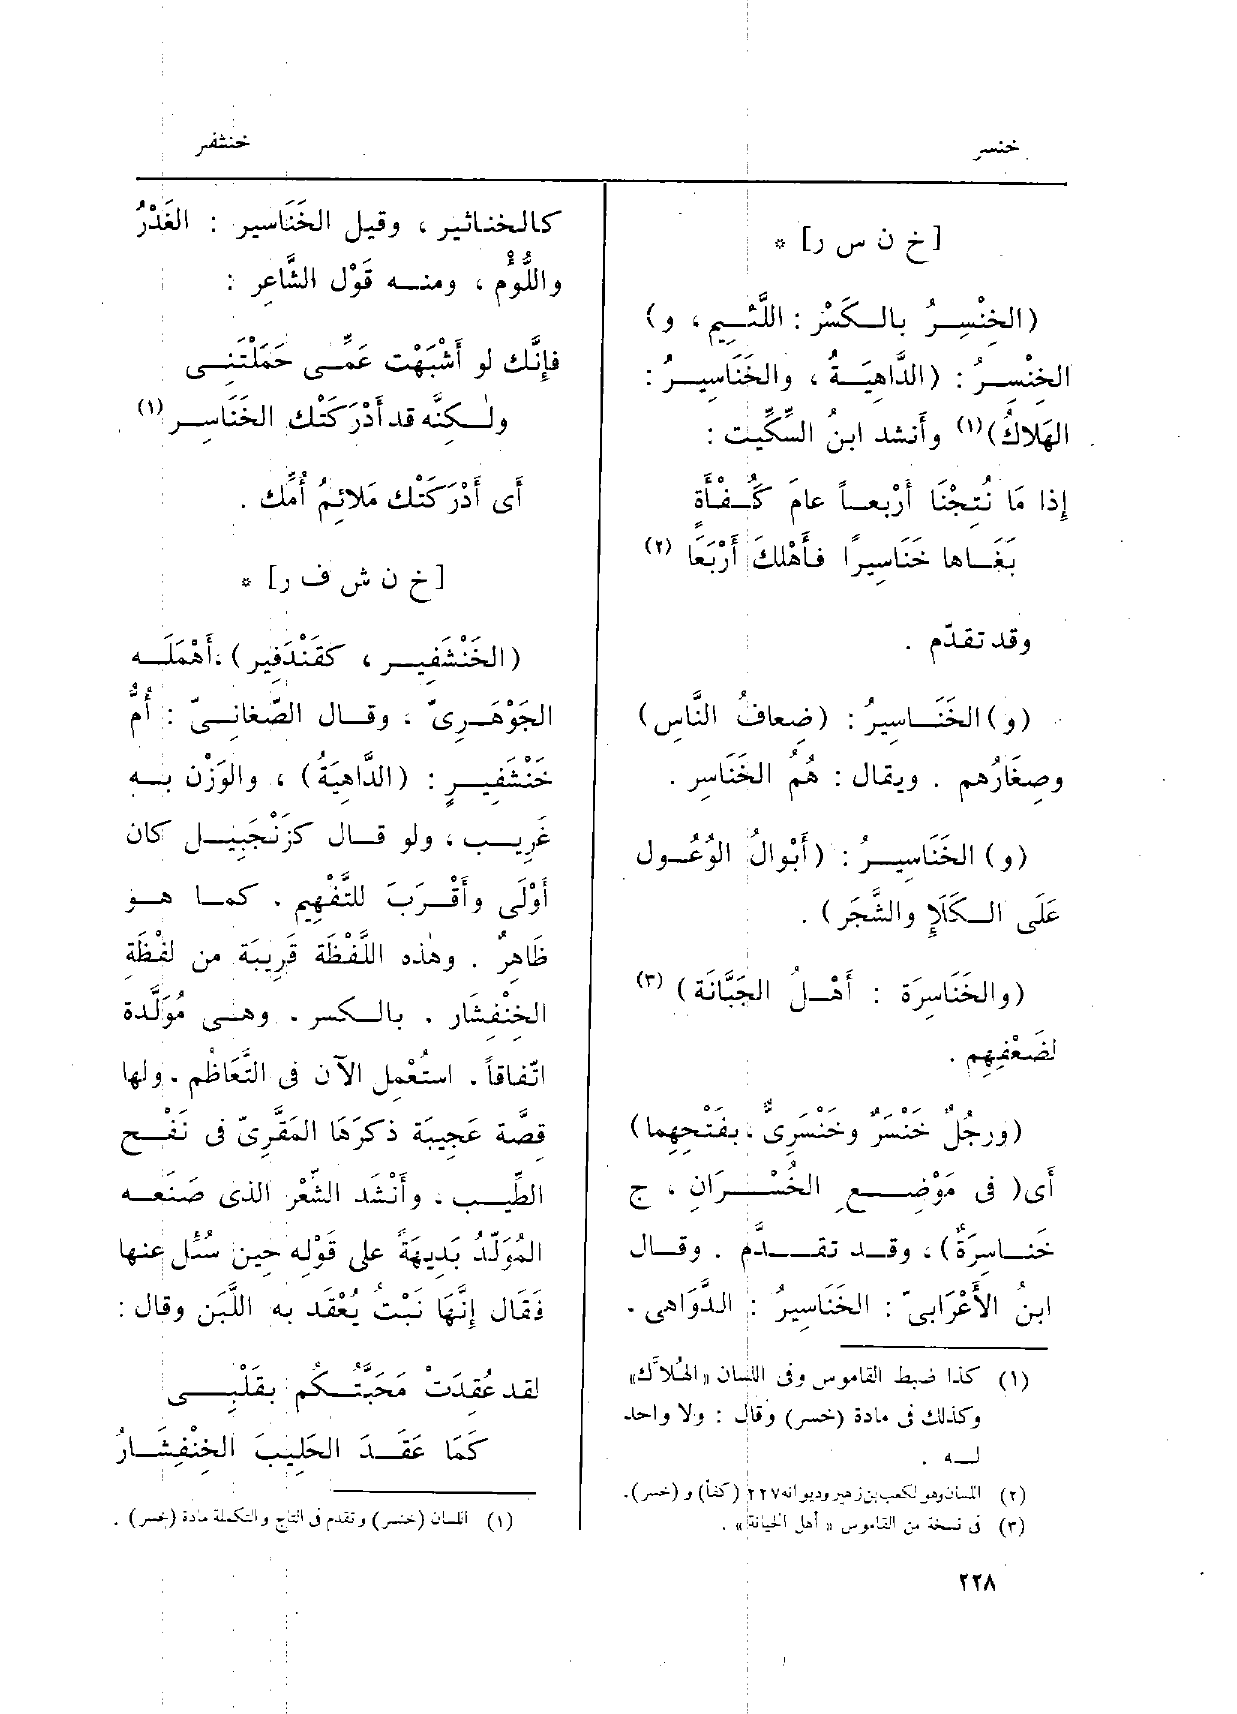 خنسر
خنشفر
[خ ن س ر] *
(الخِنْسِرُ بالكَسْر : اللَّئِيم ، و)
الخِنْسِرُ : (الدَّاهِيَةُ ، والخَنَاسِيرُ :
الهَلاكُ)(١) وأنشد ابنُ السِّكِّيت :
إذا مَا نُتِجْنَا أَرْبعاً عامَ كَُفْأَةٍ
بَغَاها خَنَاسِيرًا فأَهْلكَ أَرْبَعَا (٢)
وقد تقدّم .
(و) الخَنَاسِيرُ : (ضِعافُ النَّاس)
وصِغَارُهم . ويقال : هُمُ الخَنَاسِر .
(و) الخَنَاسِيرُ : (أَبْوالُ الوُعُول
عَلَى الكَلَإِ والشَّجَر) .
(والخَنَاسِرَة : أَهْلُ الجَبَّانَة) (٣)
لضَعْفِهم .
(ورجُلٌ خَنْسَرٌ وخَنْسَرِىٌّ ، بفَتْحِهِما)
أَى( فى مَوْضِعِ الخُسْرَانِ ، ج
خَنَاسِرَةٌ) ، وقد تقدَّم . وقال
ابنُ الأَعْرَابىّ : الخَنَاسِيرُ : الدَّوَاهى .
(١) كذا ضبط القاموس وفى اللسان «الهُلاَّك»
وكذلك فى مادة (خسر) وقال : ولا واحد
له .
(٢) اللسان وهو لكعب بن زهير وديوانه ٢٢٧ (كفأ) و (خسر).
(٣) فى نسخة من القاموس « أهل الخيانة» .
كالخناثير ، وقيل الخَنَاسير : الغَدْرُ
واللُّؤْم ، ومنه قَوْل الشَّاعِر :
فإِنَّك لو أَشْبَهْت عَمِّى حَمَلْتَنِى
ولٰكنَّه قد أَدْرَكَتْك الخَنَاسِر (١)
أى أَدْرَكَتْك مَلائِمُ أُمِّك .
[خ ن ش ف ر] *
(الخَنْشَفِير ، كقَنْدَفِير) ، أَهْمَلَه
الجَوْهَرِىّ ، وقال الصّغانىّ : أُمُّ
خَنْشَفِيرٍ : (الدَّاهِيَةُ) ، والوَزْن به
غَرِيب ، ولو قال كزَنْجَبِيل كان
أَوْلَى وأَقْرَبَ للتَّفْهِيم . كما هو
ظَاهِرٌ . وهٰذه اللَّفْظَة قَرِيبَة من لفْظَةِ
الخِنْفِشَار . بالكسر . وهى مُوَلَّدة
اتِّفاقاً . استُعْمِل الآن فى التَّعَاظُم . ولها
قِصَّة عَجِيبَة ذكَرَهَا المَقَّرِىّ فى نَفْح
الطِّيب ، وأَنْشَد الشِّعْر الذى صَنَعَه
المُوَلّدُ بَدِيهَةً على قَوْله حِين سُئل عنها
فَقَال إِنَّهَا نَبْتٌ يُعْقَد به اللَّبَن وقال :
لقد عُقِدَتْ مَحَبَّتُكم بقَلْبِى
كَمَا عَقَدَ الحَلِيبَ الخِنْفِشَارُ
(١) اللسان (خنسر) وتقدم فى التاج والتكملة مادة (خسر) .
٢٢٨